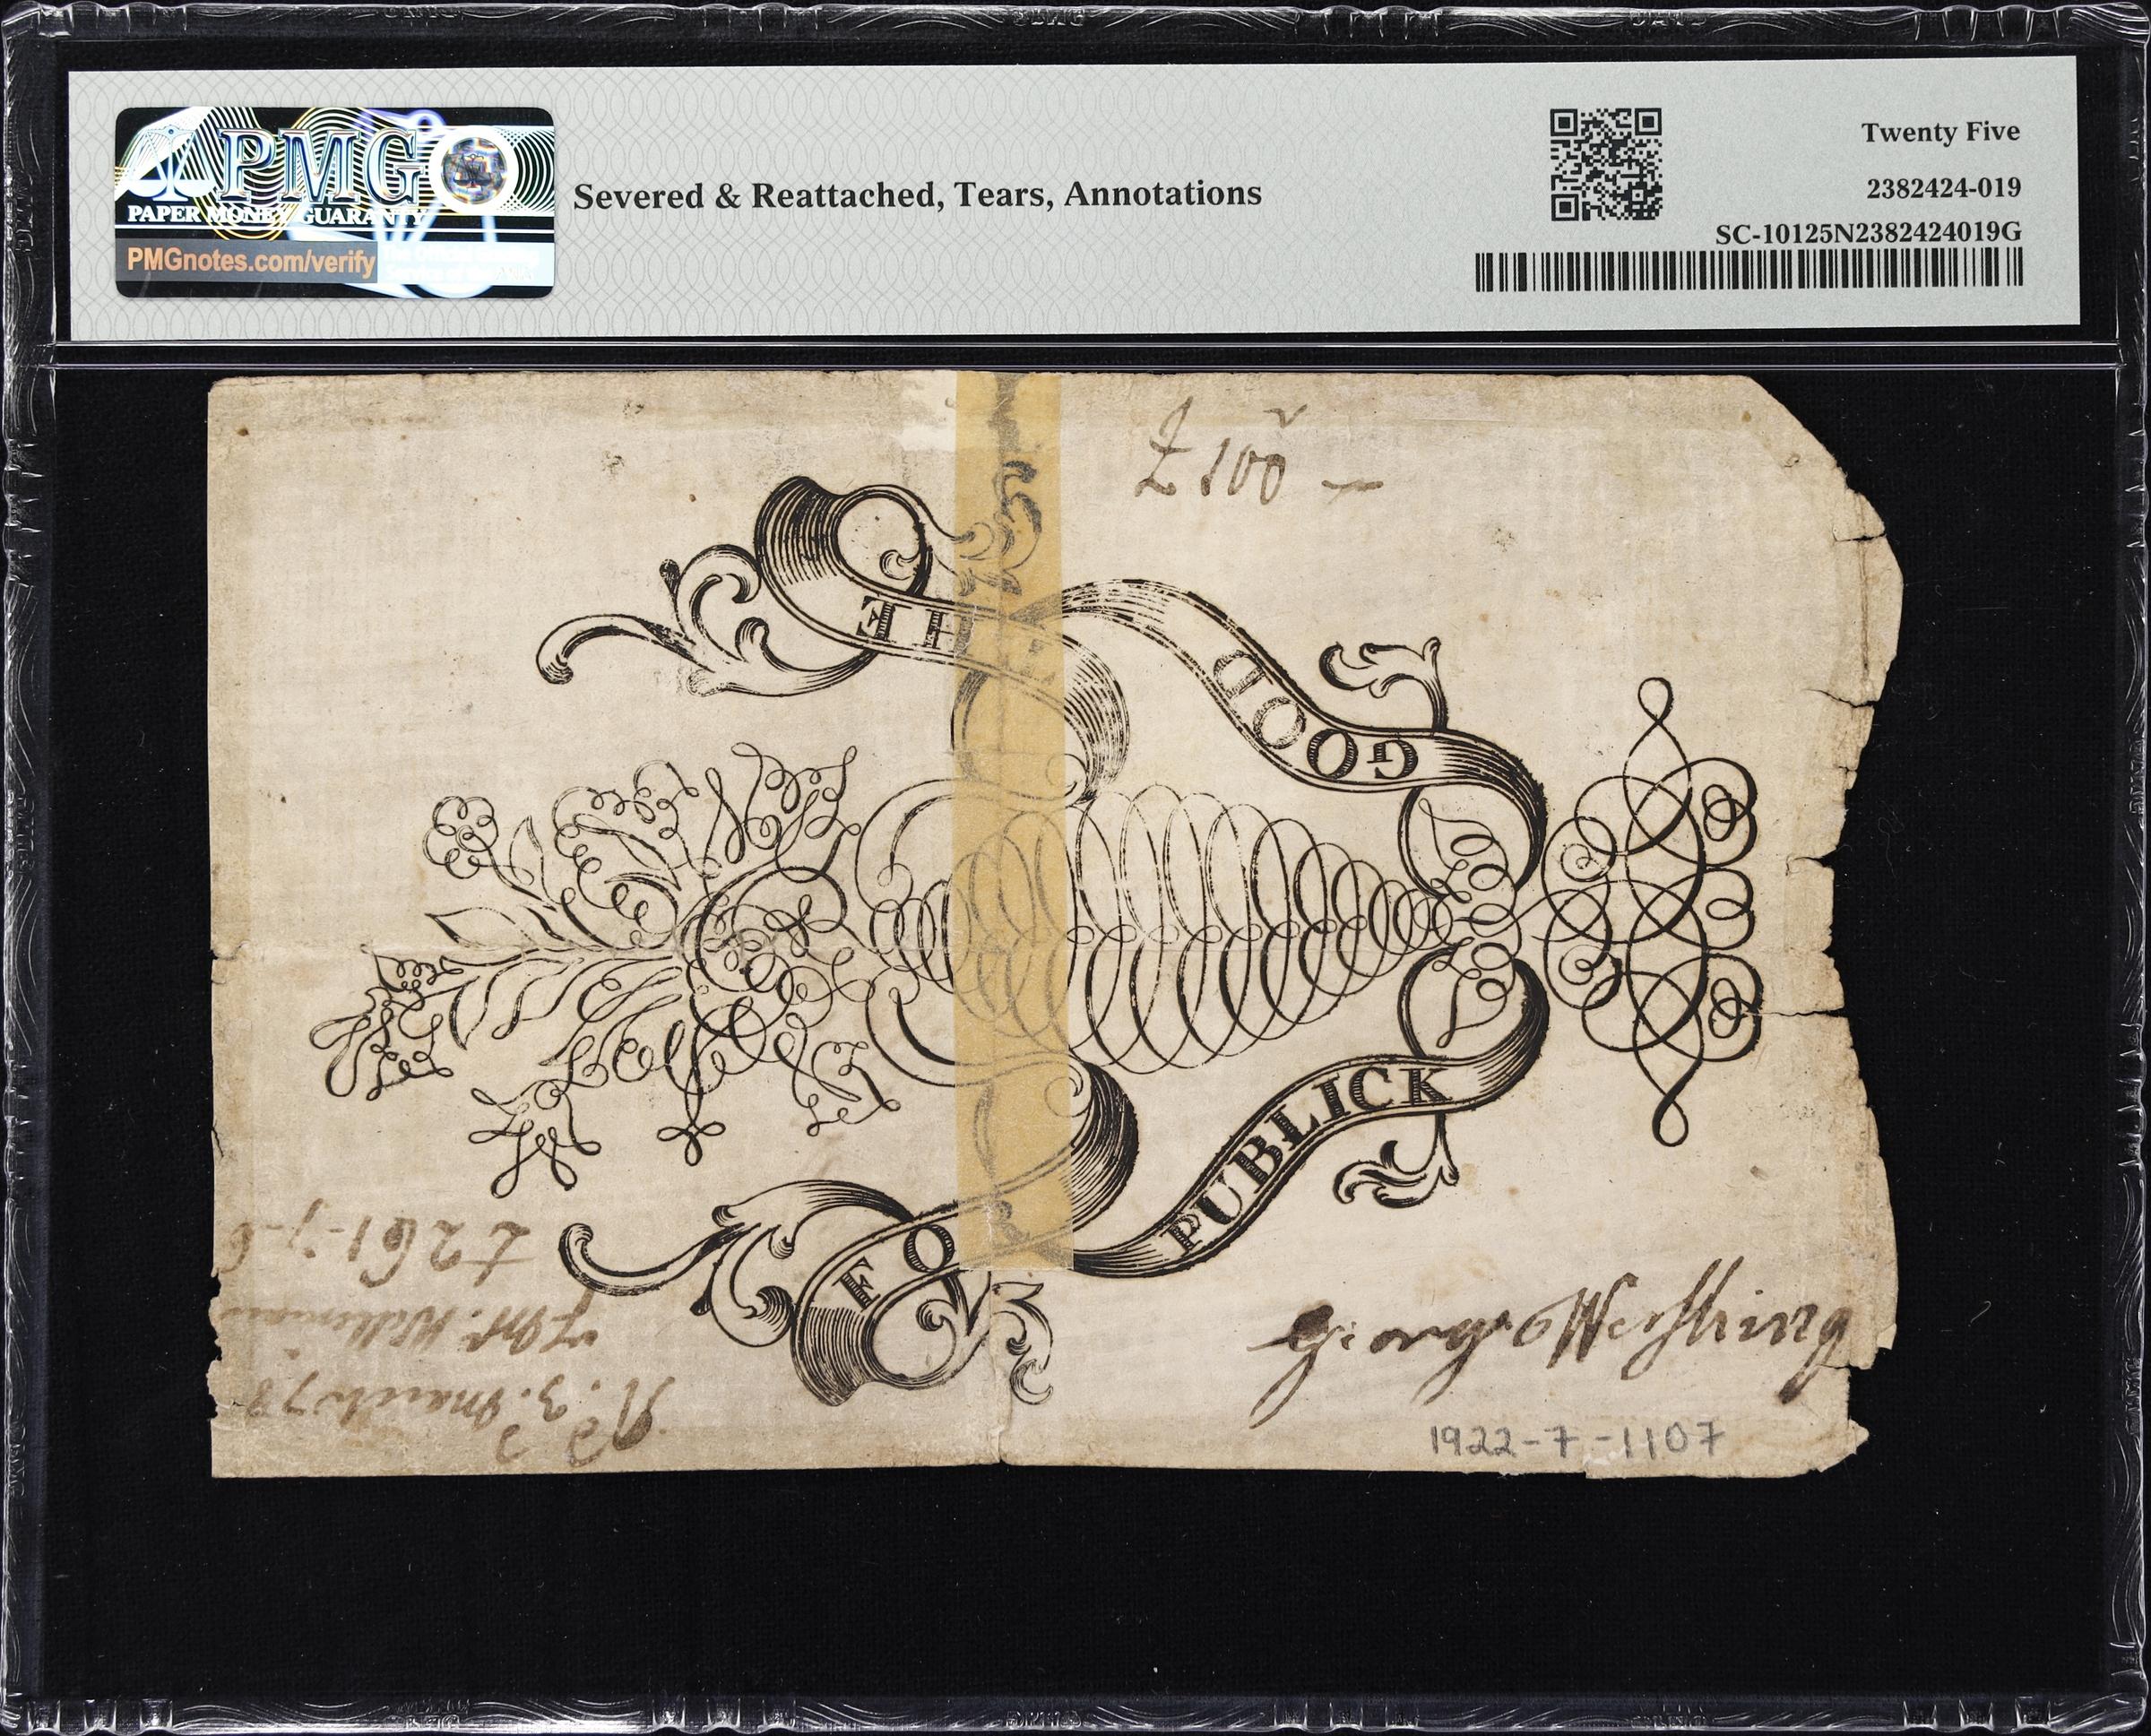 PMG
PAPER MONEY GUARANTY
PMGnotes.com/verify
Severed & Reattached, Tears, Annotations
Twenty Five
2382424-019
SC-10125N2382424019G
£100
THE
GOOD
PUBLICK
OF
£261-7-6
3 March 78
George
1922-7-1107